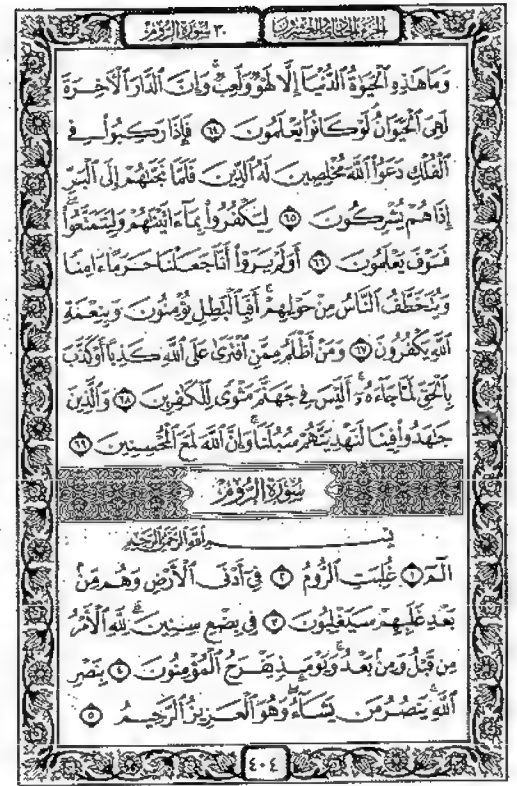 الجزء الحادي والعشرون
٣٠ سورة الروم
وَمَا هَٰذِهِ ٱلْحَيَوٰةُ ٱلدُّنْيَآ إِلَّا لَهْوٌ وَلَعِبٌ ۚ وَإِنَّ ٱلدَّارَ ٱلْءَاخِرَةَ
لَهِىَ ٱلْحَيَوَانُ ۚ لَوْ كَانُوا۟ يَعْلَمُونَ ٦٤ فَإِذَا رَكِبُوا۟ فِى
ٱلْفُلْكِ دَعَوُا۟ ٱللَّهَ مُخْلِصِينَ لَهُ ٱلدِّينَ فَلَمَّا نَجَّىٰهُمْ إِلَى ٱلْبَرِّ
إِذَا هُمْ يُشْرِكُونَ ٦٥ لِيَكْفُرُوا۟ بِمَآ ءَاتَيْنَٰهُمْ وَلِيَتَمَتَّعُوا۟ ۖ
فَسَوْفَ يَعْلَمُونَ ٦٦ أَوَلَمْ يَرَوْا۟ أَنَّا جَعَلْنَا حَرَمًا ءَامِنًا
وَيُتَخَطَّفُ ٱلنَّاسُ مِنْ حَوْلِهِمْ ۚ أَفَبِٱلْبَٰطِلِ يُؤْمِنُونَ وَبِنِعْمَةِ
ٱللَّهِ يَكْفُرُونَ ٦٧ وَمَنْ أَظْلَمُ مِمَّنِ ٱفْتَرَىٰ عَلَى ٱللَّهِ كَذِبًا أَوْ كَذَّبَ
بِٱلْحَقِّ لَمَّا جَآءَهُۥٓ ۚ أَلَيْسَ فِى جَهَنَّمَ مَثْوًى لِّلْكَٰفِرِينَ ٦٨ وَٱلَّذِينَ
جَٰهَدُوا۟ فِينَا لَنَهْدِيَنَّهُمْ سُبُلَنَا ۚ وَإِنَّ ٱللَّهَ لَمَعَ ٱلْمُحْسِنِينَ ٦٩
سُورَةُ ٱلرُّومِ
بِسْمِ ٱللَّهِ ٱلرَّحْمَٰنِ ٱلرَّحِيمِ
الٓمٓ ١ غُلِبَتِ ٱلرُّومُ ٢ فِىٓ أَدْنَى ٱلْأَرْضِ وَهُم مِّنۢ
بَعْدِ غَلَبِهِمْ سَيَغْلِبُونَ ٣ فِى بِضْعِ سِنِينَ ۗ لِلَّهِ ٱلْأَمْرُ
مِن قَبْلُ وَمِنۢ بَعْدُ ۚ وَيَوْمَئِذٍ يَفْرَحُ ٱلْمُؤْمِنُونَ ٤ بِنَصْرِ
ٱللَّهِ ۚ يَنصُرُ مَن يَشَآءُ ۖ وَهُوَ ٱلْعَزِيزُ ٱلرَّحِيمُ ٥
٤٠٤